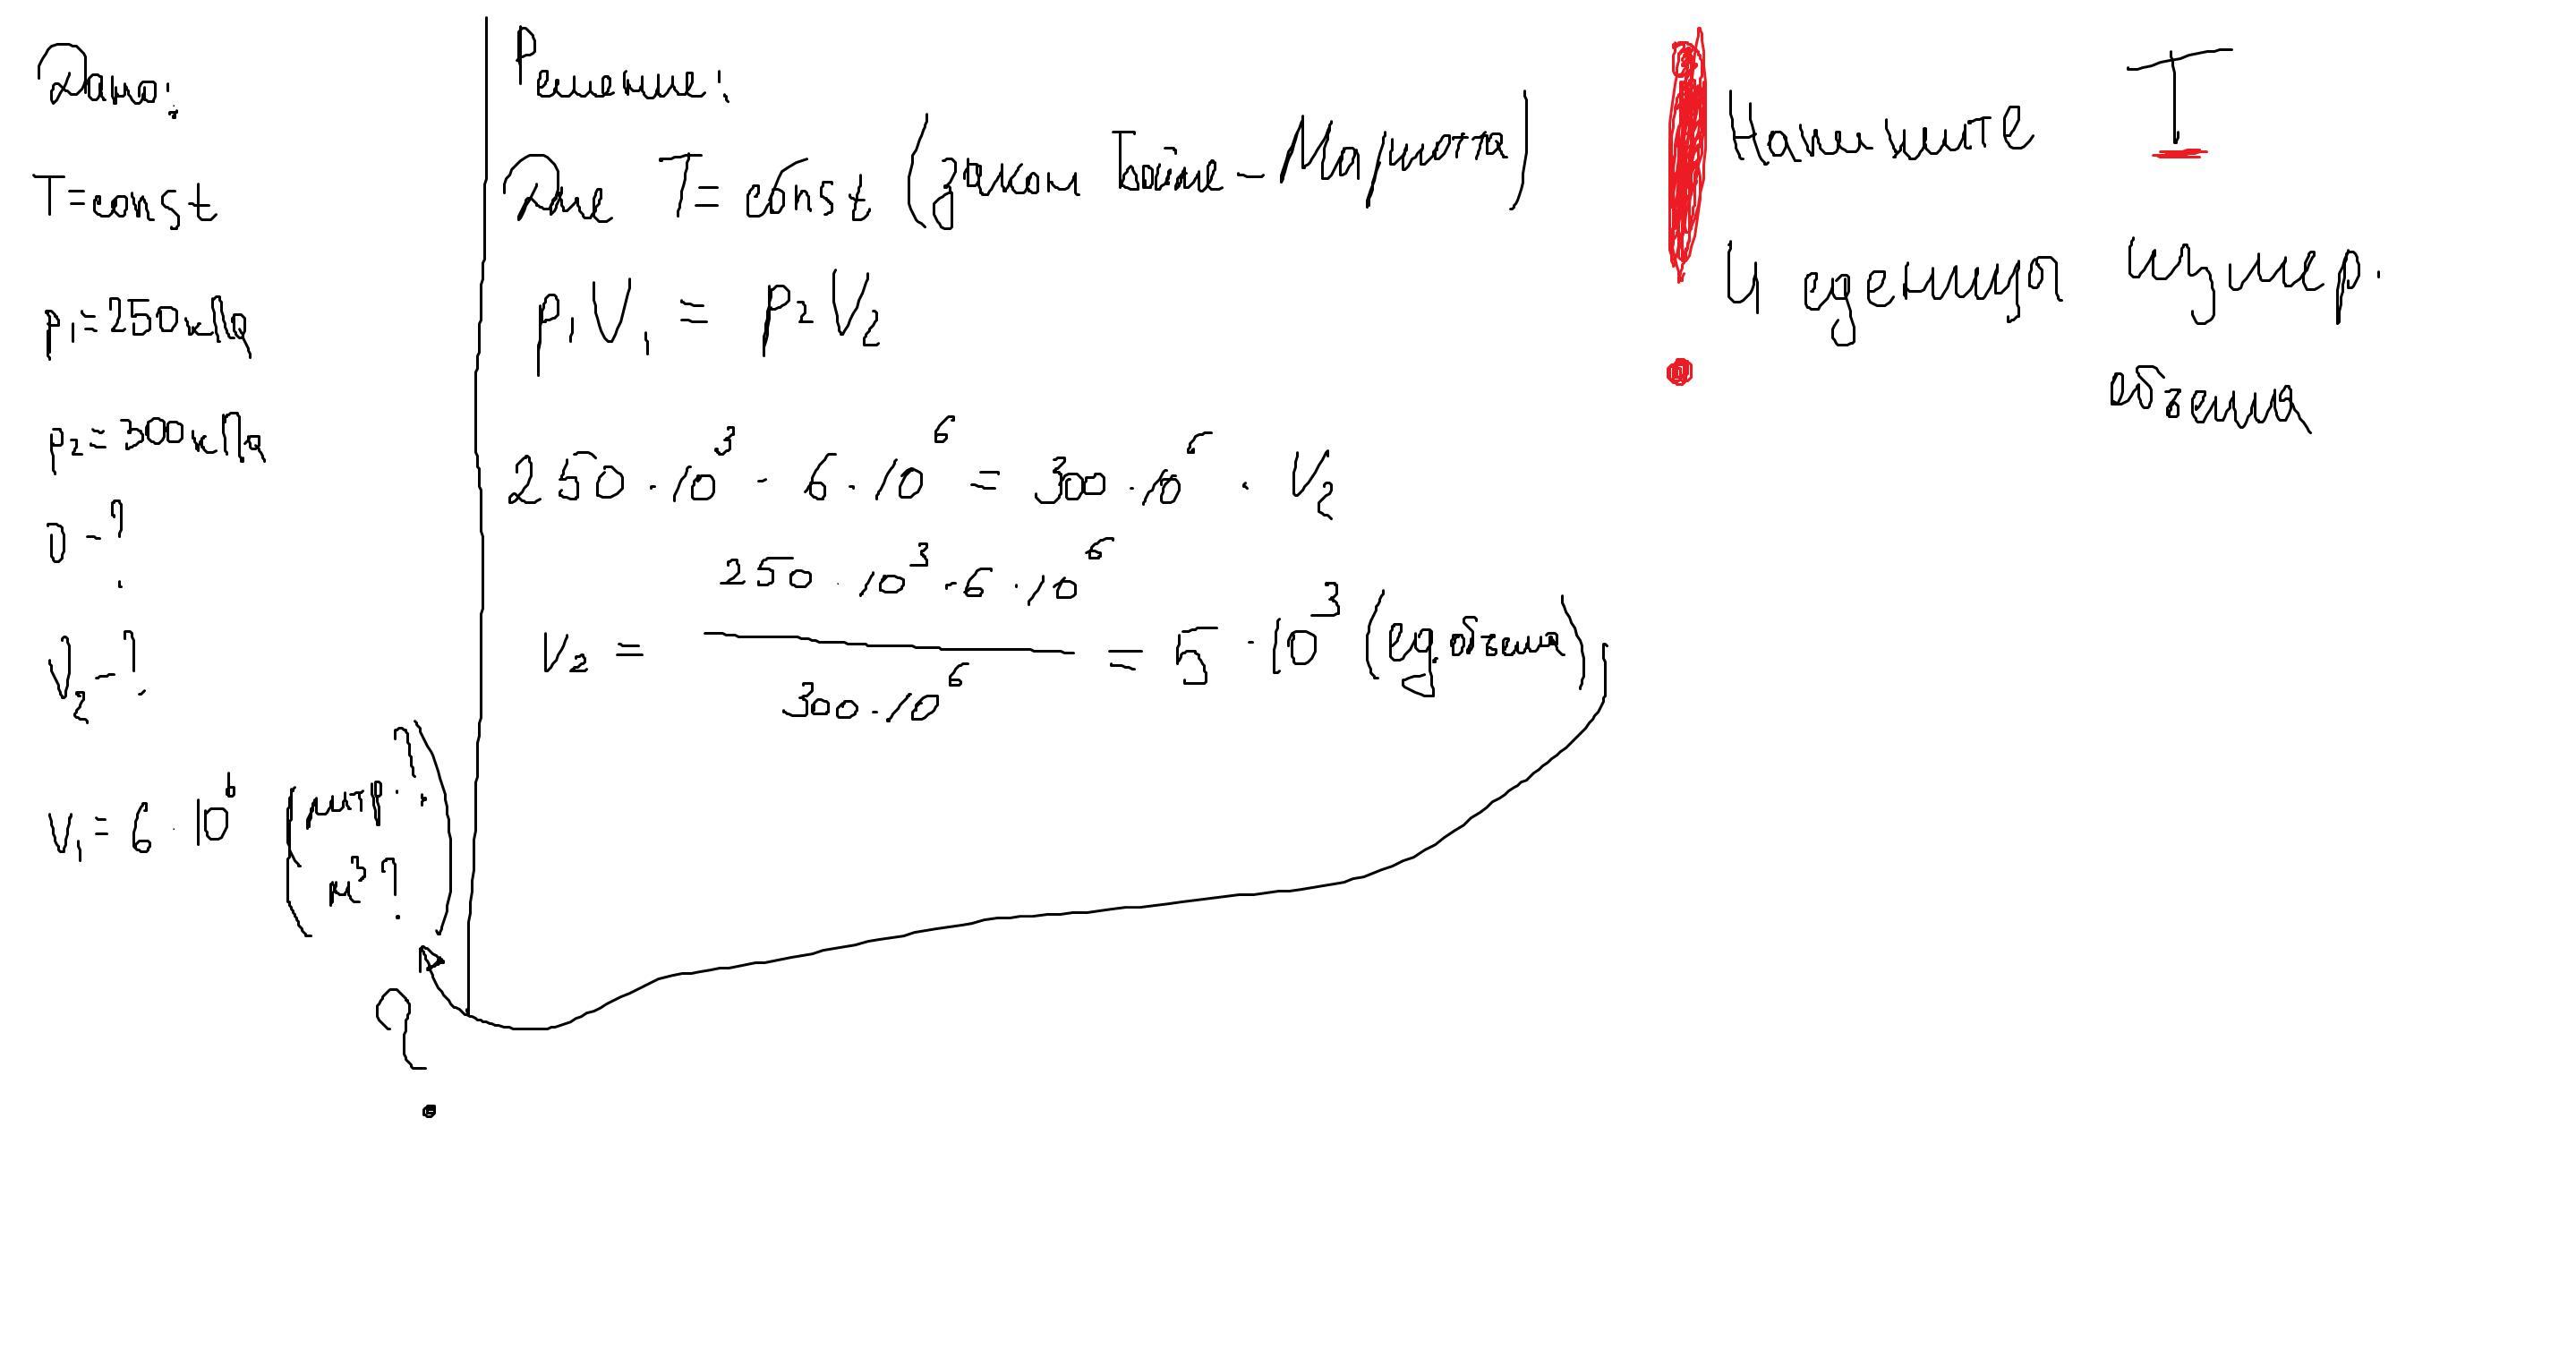 Дано:
T=const
p₁=250кПа
p₂=300кПа
υ-?
V₂-?
V₁=6·10⁶ (литр.?
м³?)
?
Решение:
Для T=const (закон Бойле-Мариотта)
p₁V₁ = p₂V₂
250·10³·6·10⁶ = 300·10⁶·V₂
V₂ = 250·10³·6·10⁶ / 300·10⁶ = 5·10³ (ед. объема)
! Напишите T
И еденицы измер.
объема